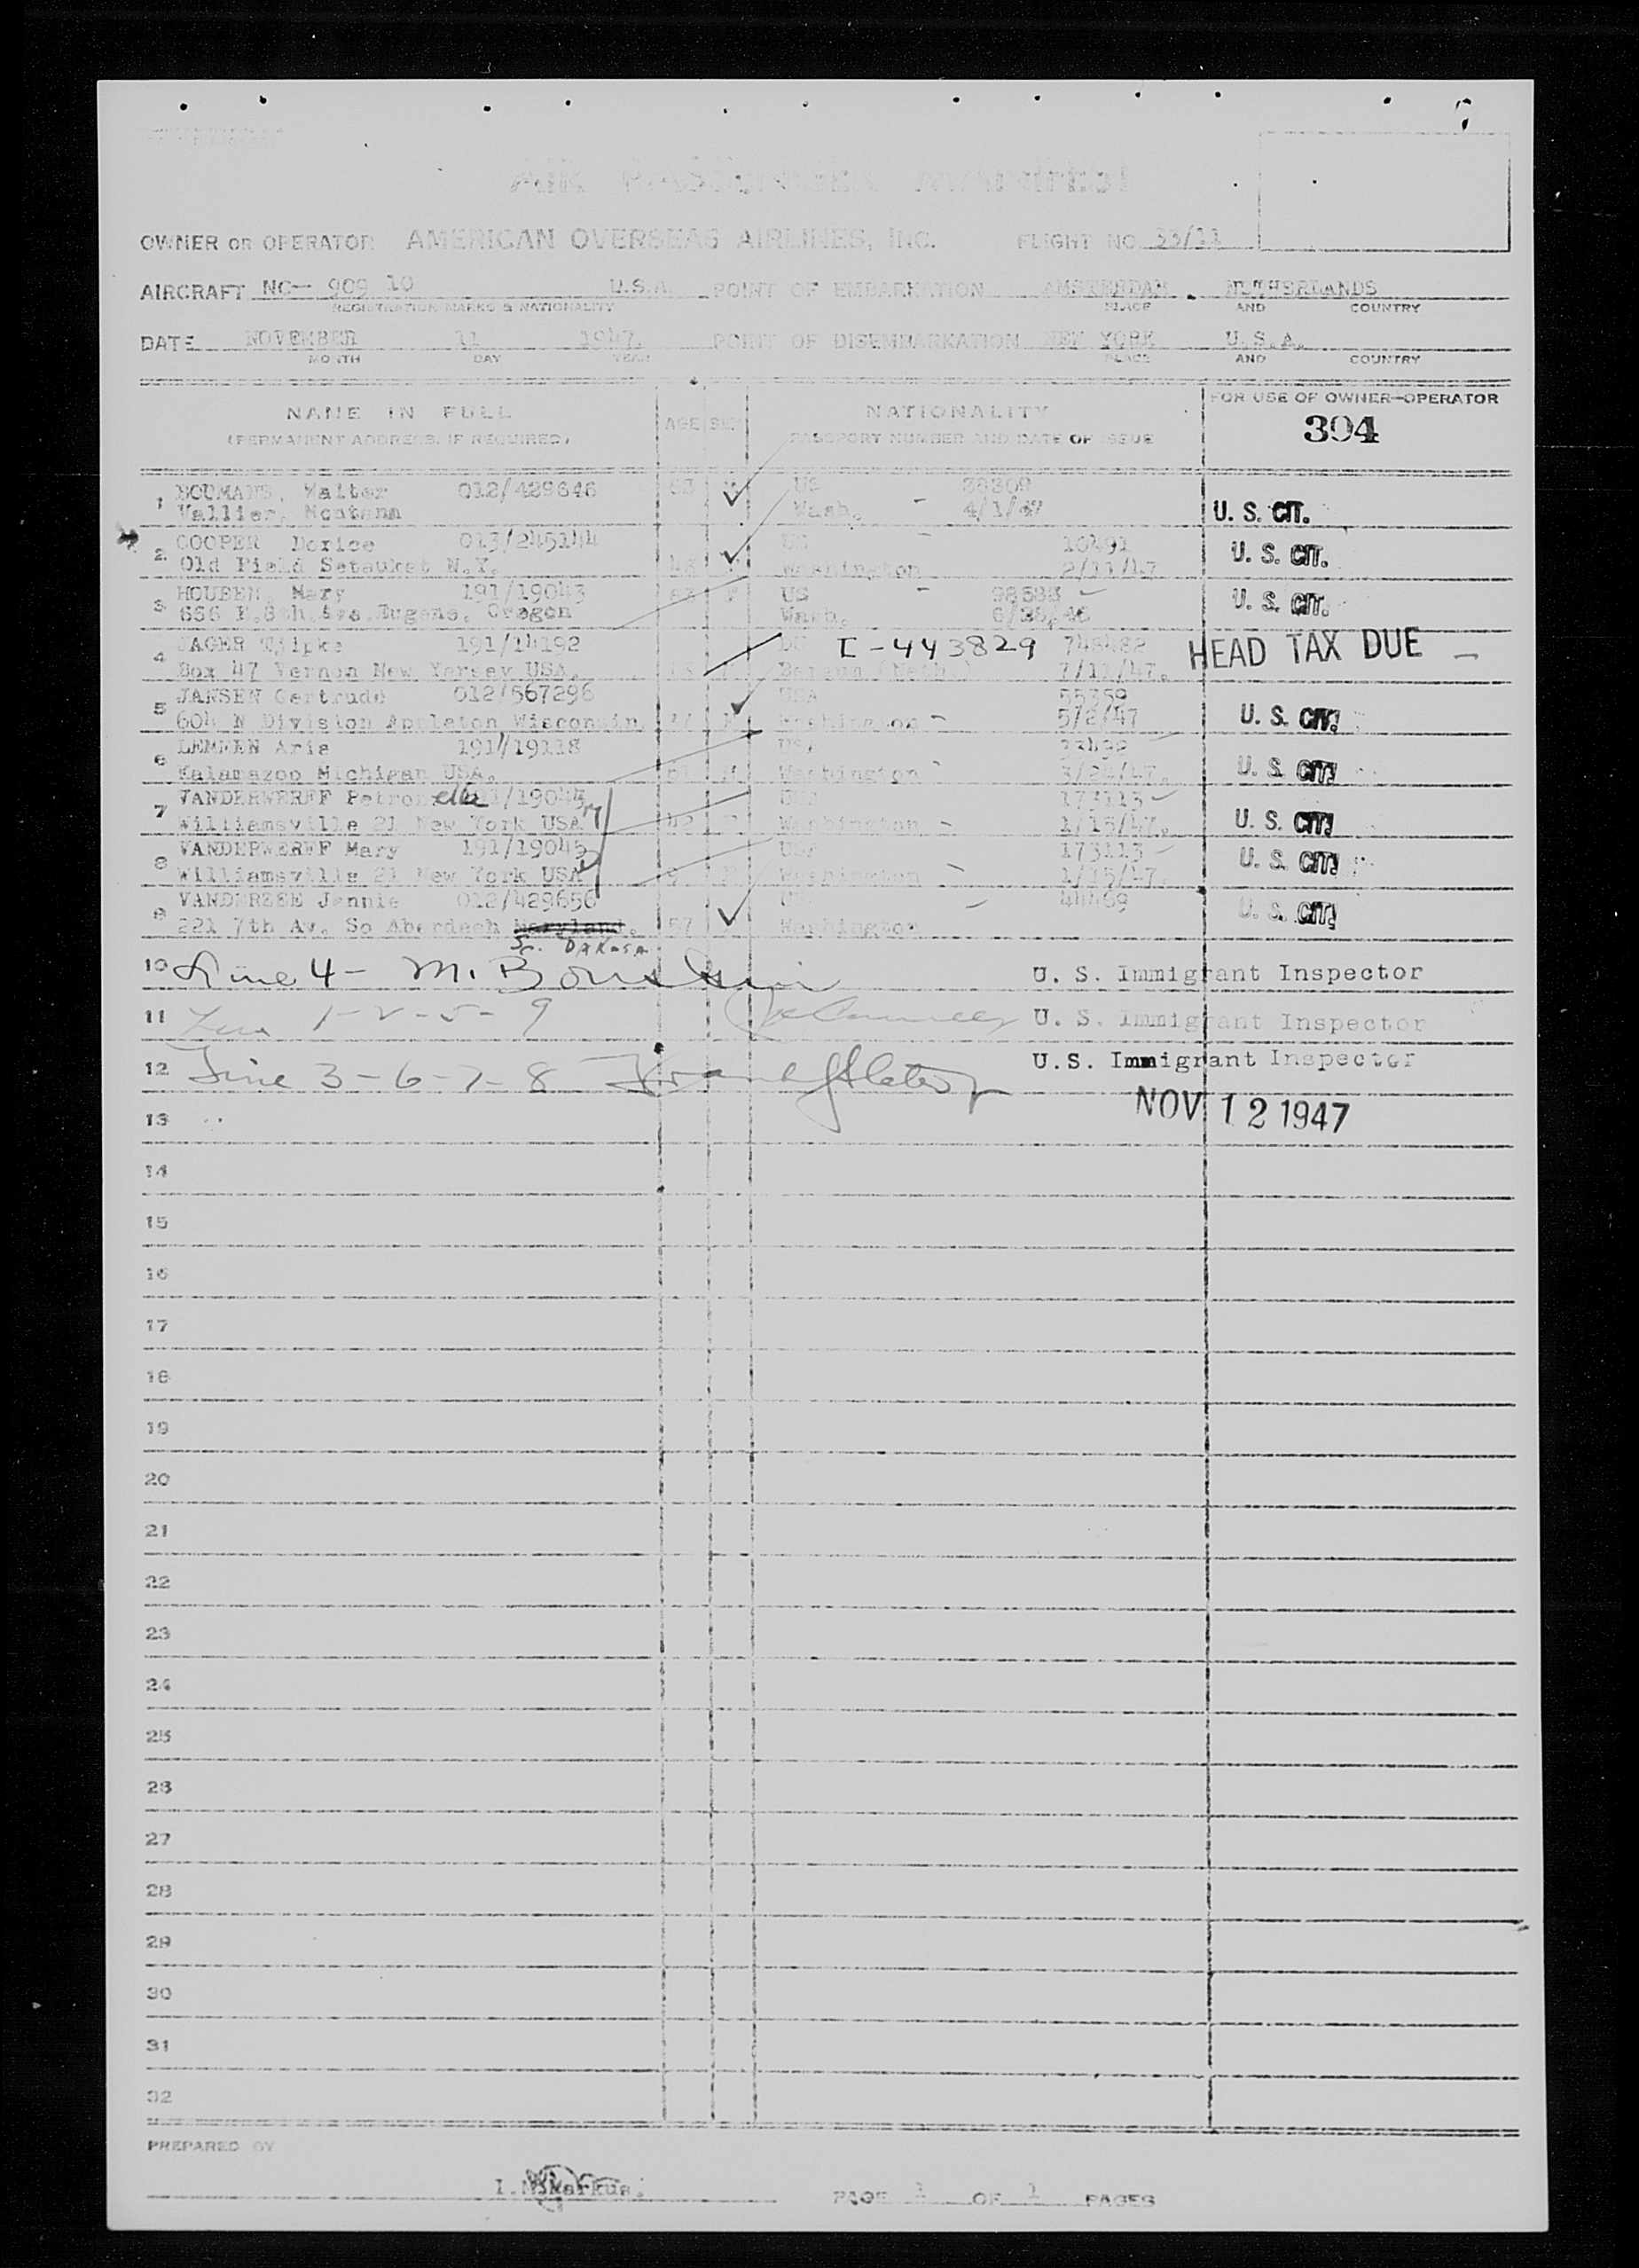 AIR PASSENGER MANIFEST
OWNER OR OPERATOR AMERICAN OVERSEAS AIRLINES, INC. FLIGHT NO 33/11
AIRCRAFT NC- 909 10 U.S.A. POINT OF EMBARKATION AMSTERDAM. NETHERLANDS
REGISTRATION MARKS & NATIONALITY PLACE AND COUNTRY
DATE NOVEMBER 11 1947. POINT OF DISEMBARKATION NEW YORK U.S.A.
MONTH DAY YEAR PLACE AND COUNTRY
NAME IN FULL AGE SEX NATIONALITY FOR USE OF OWNER-OPERATOR
(PERMANENT ADDRESS, IF REQUIRED) PASSPORT NUMBER AND DATE OF ISSUE 304
1 BOUMANS, Walter 012/429646 US 38309
Vallier, Montana Wash. - 4/1/47 U. S. CIT.
2 COOPER Dorice 013/245144 10491
Old Field Setauket N.Y. Washington 2/11/47 U. S. CIT.
3 HOUBEN, Mary 191/19043 US 98583
656 E.8th Ave.Eugene, Oregon Wash. U. S. CIT.
4 JAGER Tjipke 191/14192 I-443829 HEAD TAX DUE -
Box 47 Vernon New Yersey USA. 7/11/47.
5 JANSEN Gertrude 012/567296 USA 55359
604 N Division Appleton Wisconsin. Washington - 5/2/47 U. S. CIT.
6 LEMMEN Arie 191/19118 USA
Kalamazoo Michigan USA. Washington U. S. CIT.
7 VANDERWERFF Petronella /19044 173113
Williamsville 21 New York USA Washington - 1/15/47. U. S. CIT.
8 VANDERWERFF Mary 191/19045 173113
Williamsville 21 New York USA Washington 1/15/47. U. S. CIT.
9 VANDERZEE Jennie 012/429656 44469
221 7th Av. So Aberdeen Maryland. 57 Washington U. S. CIT.
So. DAKOTA
10 Line 4 - M. U. S. Immigrant Inspector
11 Line 1-2-5-9 U. S. Immigrant Inspector
12 Line 3-6-7-8 U.S. Immigrant Inspector
NOV 12 1947
13
14
15
16
17
18
19
20
21
22
23
24
25
26
27
28
29
30
31
32
PREPARED BY
PAGE 1 OF 1 PAGES